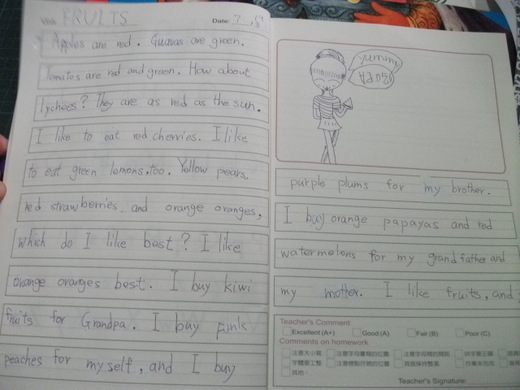 FRUITS
Date:
Apples are red. Guavas are green.
Tomatos are red and green. How about
lychees? They are as red as the sun.
I like to eat red cherries. I like
to eat green lemons, too. Yellow pears,
red strawberries, and orange oranges,
which do I like best? I like
orange oranges best. I buy kiwi
fruits for Grandpa. I buy pink
peaches for myself, and I buy
yummy
purple plums for my brother.
I buy orange papayas and red
watermelons for my grandfather and
my mother. I like fruits, and
Teacher's Comment
Excellent (A+) Good (A) Fair (B) Poor (C)
Comments on homework
Teacher's Signature: